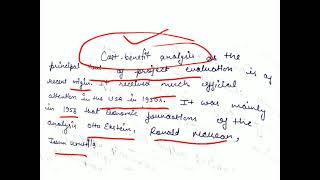 Cost-benefit analysis as the
principal tool of project evaluation is of
recent origin. It received much official
attention in the USA in 1950s. It was mainly
in 1958 that economic foundations of the
analysis Otto Eckstein, Ronald McKean,